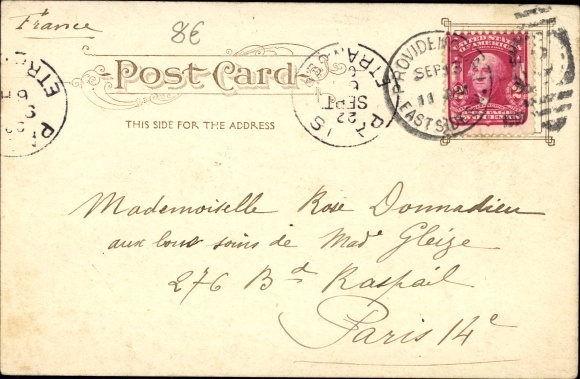 France
8€
Post Card
THIS SIDE FOR THE ADDRESS
PROVIDEN
SEP 13
11
EAST SIDE
UNITED STATES
OF AMERICA
POSTAGE
TWO CENTS
ETR
22
SEPT
ETRA
Mademoiselle Rose Donnadieu
aux bons soins de Made Gleize
276 Bd Raspail
Paris 14e